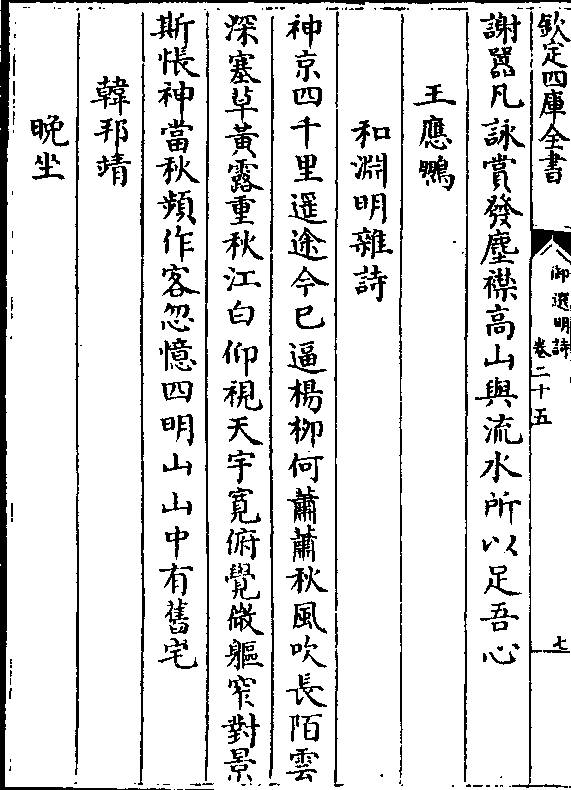 欽定四庫全書
御選明詩
卷二十五
七
謝囂凡詠賞發塵襟高山與流水所以足吾心
王應鵬
和淵明雜詩
神京四千里遥途今已逼楊柳何蕭蕭秋風吹長陌雲
深塞草黃露重秋江白仰視天宇寛俯覺微軀窄對景
斯悵神當秋頻作客忽憶四明山山中有舊宅
韓邦靖
晚坐